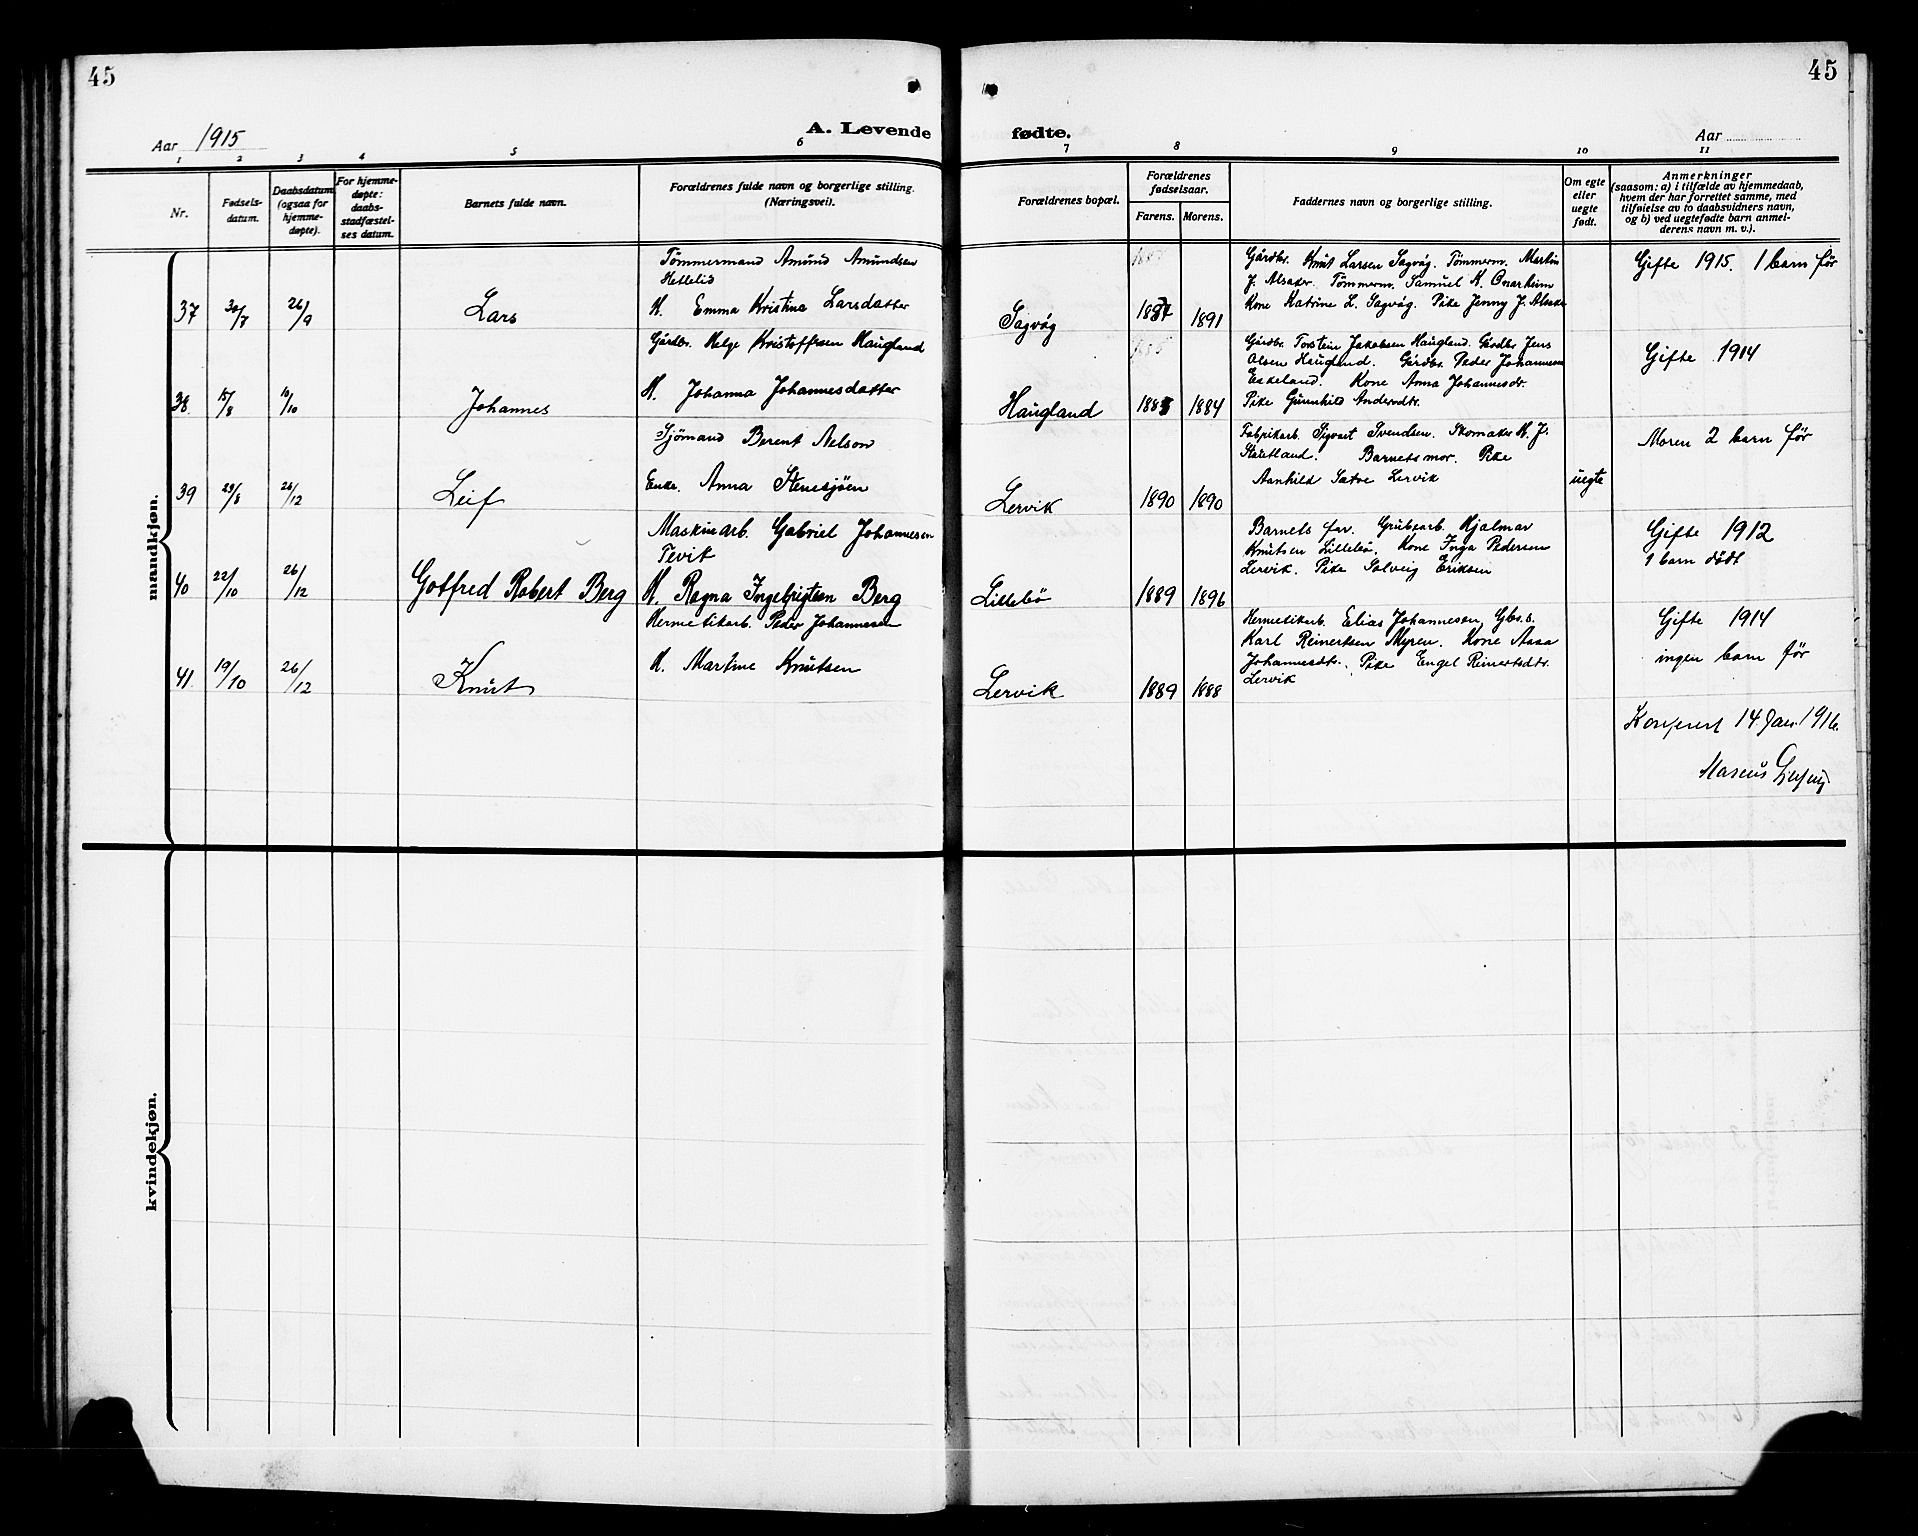 45
45
Aar 1915
A. Levende
fødte.
Aar
1 2 3 4 5 6 7 8 9 10 11
Nr.
Fødsels-
datum.
Daabsdatum
(ogsaa for
hjemme-
døpte).
For hjemme-
døpte:
daabs-
stadfæstel-
ses datum.
Barnets fulde navn.
Forældrenes fulde navn og borgerlige stilling.
(Næringsvei).
Forældrenes bopæl.
Forældrenes
fødselsaar.
Farens.
Morens.
Faddernes navn og borgerlige stilling.
Om egte
eller
uegte
født.
Anmerkninger
(saasom: a) i tilfælde av hjemmedaab,
hvem der har forrettet samme, med
tilføielse av to daabsvidners navn,
og b) ved uegtefødte barn anmel-
derens navn m. v.).
mandkjøn.
37 30/7 26/9 Lars
Tömmermand Amund Amundsen
Hetlelid
K. Emma Kristina Larsdatter
Sagvåg 1887 1891
Gårdbr. Knut Larsen Sagvåg. Tömmerm. Martin
J. Alsaker. Tömmerm. Samuel K. Onarheim
Kone Katrine L. Sagvåg. Pike Jenny J. Alsaker
Gifte 1915. 1 barn før
38 15/8 10/10 Johannes
Gårdbr. Helge Kristoffersen Haugland
K. Johanna Johannesdatter
Haugland 1885 1884
Gårdbr. Torstein Jakobsen Haugland. Gårdbr Jens
Olsen Haugland. Gårdbr. Peder Johannesen
Eskeland. Kone Anna Johannesdr.
Pike Gunnhild Andersdtr.
Gifte 1914
39 29/8 26/12 Leif
Sjömand Berent Nelson
Enke. Anna Stensjöen
Lervik 1890 1890
Fabrikarb. Sigvart Svendsen. Skomaker H. J.
Stautland. Barnets mor. Pike
Aanhild Sætre Lervik
uegte
Moren 2 barn før
40 22/10 26/12 Gotfred Robert Berg
Maskinarb. Gabriel Johannesen
Tevik
K. Ragna Ingebrigtsen Berg
Lillebö 1889 1896
Barnets far. Grubearb. Hjalmar
Knutsen Lillebö. Kone Inga Pedersen
Lervik. Pike Solveig Eriksen
Gifte 1912
1 barn dödt
41. 19/10 26/12 Knut
Hermetikarb. Peder Johannesen
K. Martine Knutsen
Lervik 1889 1888
Hermetikarb. Elias Johannesen, Gbr. s.
Karl Reinertsen Myren. Kone Aasa
Johannesdtr. Pike Engel Reinertsdtr.
Lervik
Gifte 1914
ingen barn før
Konferert 14 Jan. 1916.
kvindekjøn.